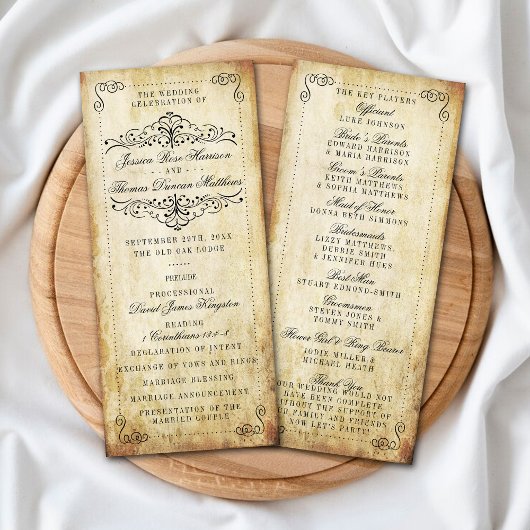 THE WEDDING
CELEBRATION OF
Jessica Rose Harrison
AND
Thomas Duncan Matthews
SEPTEMBER 29TH, 20XX
THE OLD OAK LODGE
PRELUDE
PROCESSIONAL
David James Kingston
READING
1 Corinthians 13:4-8
DECLARATION OF INTENT
EXCHANGE OF VOWS AND RINGS
MARRIAGE BLESSING
MARRIAGE ANNOUNCEMENT
PRESENTATION OF THE
MARRIED COUPLE
THE KEY PLAYERS
Officiant
LUKE JOHNSON
Bride's Parents
EDWARD HARRISON
& MARIA HARRISON
Groom's Parents
KEITH MATTHEWS
& SOPHIA MATTHEWS
Maid of Honor
DONNA BETH SIMMONS
Bridesmaids
LIZZY MATTHEWS,
DEBBIE SMITH
& JENNIFER HUES
Best Man
STUART EDMOND-SMITH
Groomsmen
STEVEN JONES &
TOMMY SMITH
Flower Girl & Ring Bearer
JODIE MILLER &
MICHAEL HEATH
Thank You
OUR WEDDING WOULD NOT
HAVE BEEN COMPLETE
WITHOUT THE SUPPORT OF
OUR FAMILY AND FRIENDS
NOW LET'S PARTY!